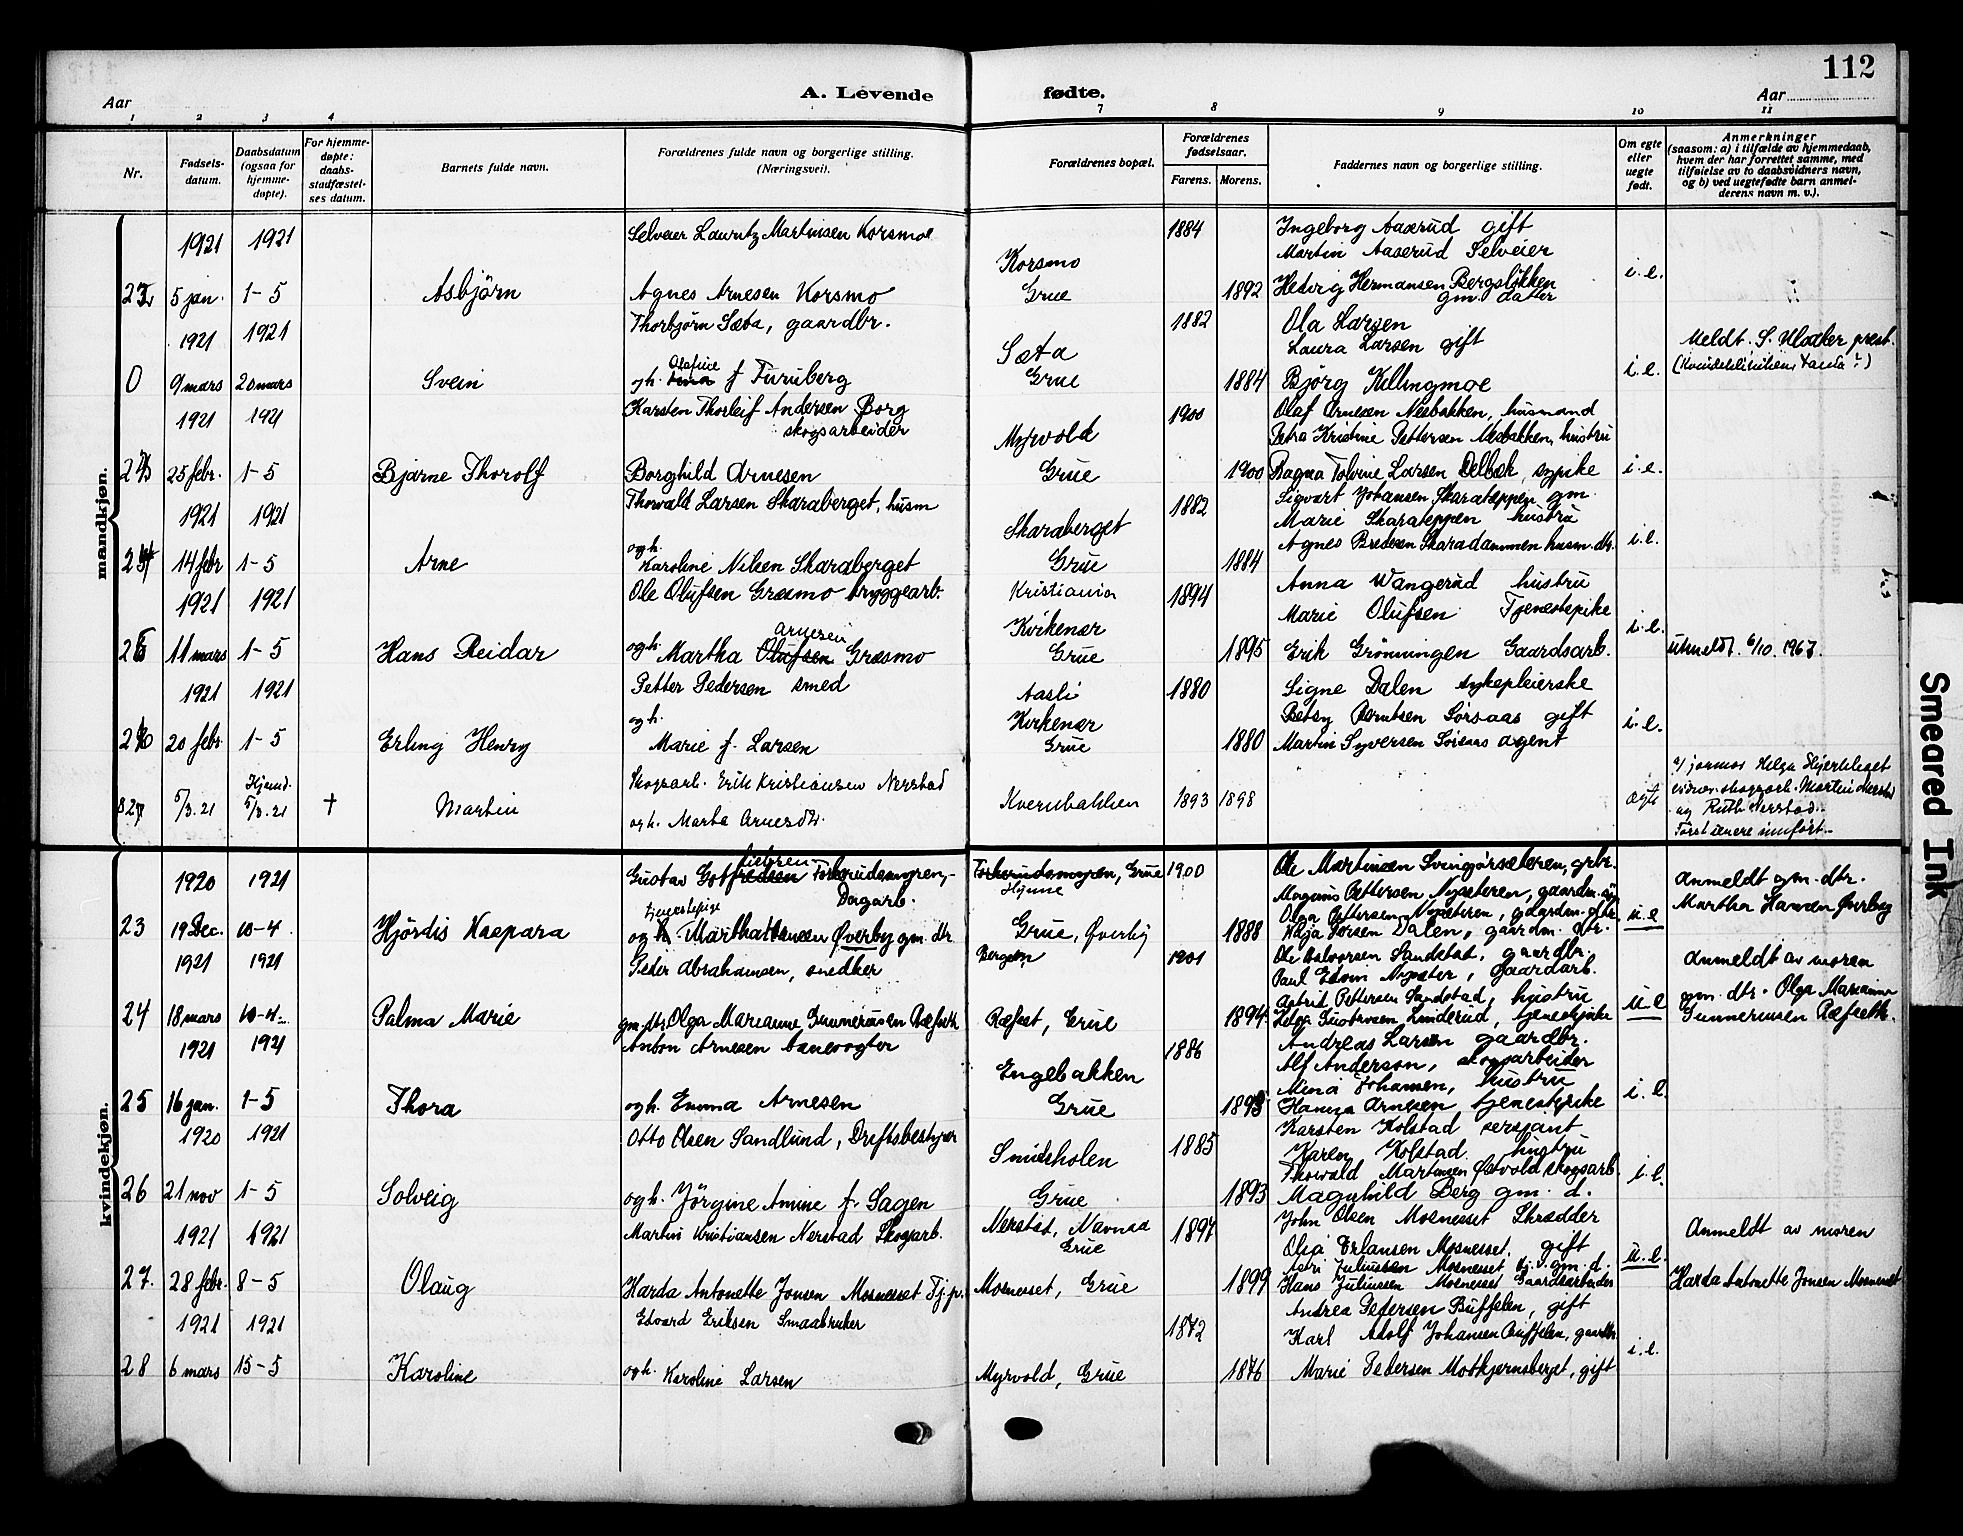 112
A. Levende fødte.
Aar
Aar
1 2 3 4 7 8 9 10 11
Nr.
Fødsels-
datum.
Daabsdatum
(ogsaa for
hjemme-
døpte).
For hjemme-
døpte:
daabs-
stadfæstel-
ses datum.
Barnets fulde navn.
Forældrenes fulde navn og borgerlige stilling.
(Næringsvei).
Forældrenes bopæl.
Forældrenes
fødselsaar.
Farens. Morens.
Faddernes navn og borgerlige stilling.
Om egte
eller
uegte
født.
Anmerkninger
(saasom: a) i tilfælde av hjemmedaab,
hvem der har forrettet samme, med
tilføielse av to daabsvidners navn,
og b) ved uegtefødte barn anmel-
derens navn m. v.).
mandkjøn.
1921 1921 Selveier Lauritz Martinsen Korsmo 1884 Ingeborg Aaserud gift
Martin Aaserud Selveier
Korsmo
5 jan. 1-5 Asbjörn Agnes Arnesen Korsmo Grue 1892 Hedvig Hermansen Bergsløkken i.e.
gm. datter
1921 1921 Thorbjörn Sæta, gaardbr. 1882 Ola Larsen
Laura Larsen gift
Sæta
Meldt. S. prest.
0 9 mars 20 mars Svein og h. Olafine f Furuberg Grue 1884 Bjørg Killingmoe i.e.
1921 1921 Karsten Thorleif Andersen Borg 1900 Olaf Arnesen Nesbakken, husmand
skogsarbeider Petra Kristine Pettersen Nesbakken, hustru
Myrvold
25 febr. 1-5 Bjarne Thorolf Borghild Arnesen Grue 1900 Ragna Larsen sypike i.e.
1921 1921 Thorvald Larsen Skaraberget, husm 1882 Sigvart Johansen Skarateppen gm.
Marie Skarateppen hustru
Skaraberget
14 febr 1-5 Arne og h. Karoline Nilsen Skaraberget Grue 1884 Agnes Skaradammen husm. dtr. i.e.
1921 1921 Ole Olufsen Græsmo bryggearb. Kristiania 1894 Anna Wangerud hustru
Marie Olufsen Tjenestepike
Kirkenær
11 mars 1-5 Hans Reidar og h. Martha Olufsen Arnesen Græsmo Grue 1895 Erik Grønningen Gaardsarb. i.e. utmeldt 6/10. 1967.
1921 1921 Petter Pedersen smed Aasli 1880 Signe Dalen sykepleierske
Kirkenær Betsy Berntsen Sörsaas gift
26 20 febr 1-5 Erling Henry og h. Marie f. Larsen Grue 1880 Martin Syversen Sörsaas agent i.e.
Hjemd.
27 5/3. 21 5/3. 21 † Martin Skogsarb. Erik Kristiansen Nerstad
og h. Marta Arnesdtr. Kvernbakken 1893 1898 ægte
v/ jormor Helga
vidner: skogsarb. Martin Nerstad
og Ruth Nerstad.
Först senere innført.
kvindekjøn.
1920 1921 Gustav Gotfredsen Torkerudsmyren, Dagarb. Torkerudsmyren, Grue 1900 Ole Martinsen Svingörsæteren, grbr.
Magnus Pettersen Nysæteren, gaardm.
Olga Pettersen Nysæteren, gaardm. dtr.
23 19 Dec. 10-4 Hjördis Kaspara tjenestepige
og Martha Hansen Øverby gm. dtr. Grue, Øverby 1888 Kaja Larsen Dalen, gaardm. dtr. u.e
Anmeldt gm. dtr.
Martha Hansen Øverby
1921 1921 Peder Abrahamsen, snedker Bergen 1901 Ole Halvorsen Sandstad, gaardbr.
Paul Edvin Nysæter, Gaardarb.
Astrid Pettersen Sandstad, hustru
24 18 mars 10-4 Palma Marie gm. dtr. Olga Marianne Gunneriusen Ræfset Ræfset, Grue 1894 Helga Gustavsen Linderud, tjenestepike u.e
Anmeldt av moren
gm. dtr. Olga Marianne
Gunneriusen Ræfseth.
1921 1921 Anton Arnesen banevogter 1886 Andreas Larsen gaardbr.
Alf Anderson, skogsarbeider
Engebakken Mina Johansen, hustru
25 16 jan. 1-5 Thora og h. Emma Arnesen Grue Hanna Arnesen tjenestepike i.e.
1920 1921 Otto Olsen Sandlund, Driftsbestyrer 1885 Karsten Kolstad sersjant
Karen Kolstad hustru
Smidsholen Thorvald Martinsen Østvold skogsarb.
26 21 nov 1-5 Solveig og h. Jörgine Amine f. Sagen Grue 1893 Magnhild Berg gm. d. i.e.
1921 1921 Martin Kristiansen Nerstad Skogarb. Nerstad, Navnaa Grue 1897 John Olsen Mosnesset Skrædder
Olia Erlansen Mosnesset. gift
Astri Juliussen Mosnesset tj. gm. d.
27. 28 febr. 8-5 Olaug Harda Antonette Jonsen Mosnesset Tj. p. Mosnesset, Grue 1899 Hans Juliussen Mosnesset Gaardsarbeider u.e.
Anmeldt av moren
Harda Antonette Jonsen Mosnesset
1921 1921 Edvard Eriksen Smaabruker 1872 Andrea Pedersen Buffelen, gift
Karl Adolf Johansen Buffelen, gaardbr.
28 6 mars 15-5 Karoline og h. Karoline Larsen Myrvold, Grue 1876 Marie Pedersen Motkjernsberget, gift i.e.
Smeared Ink